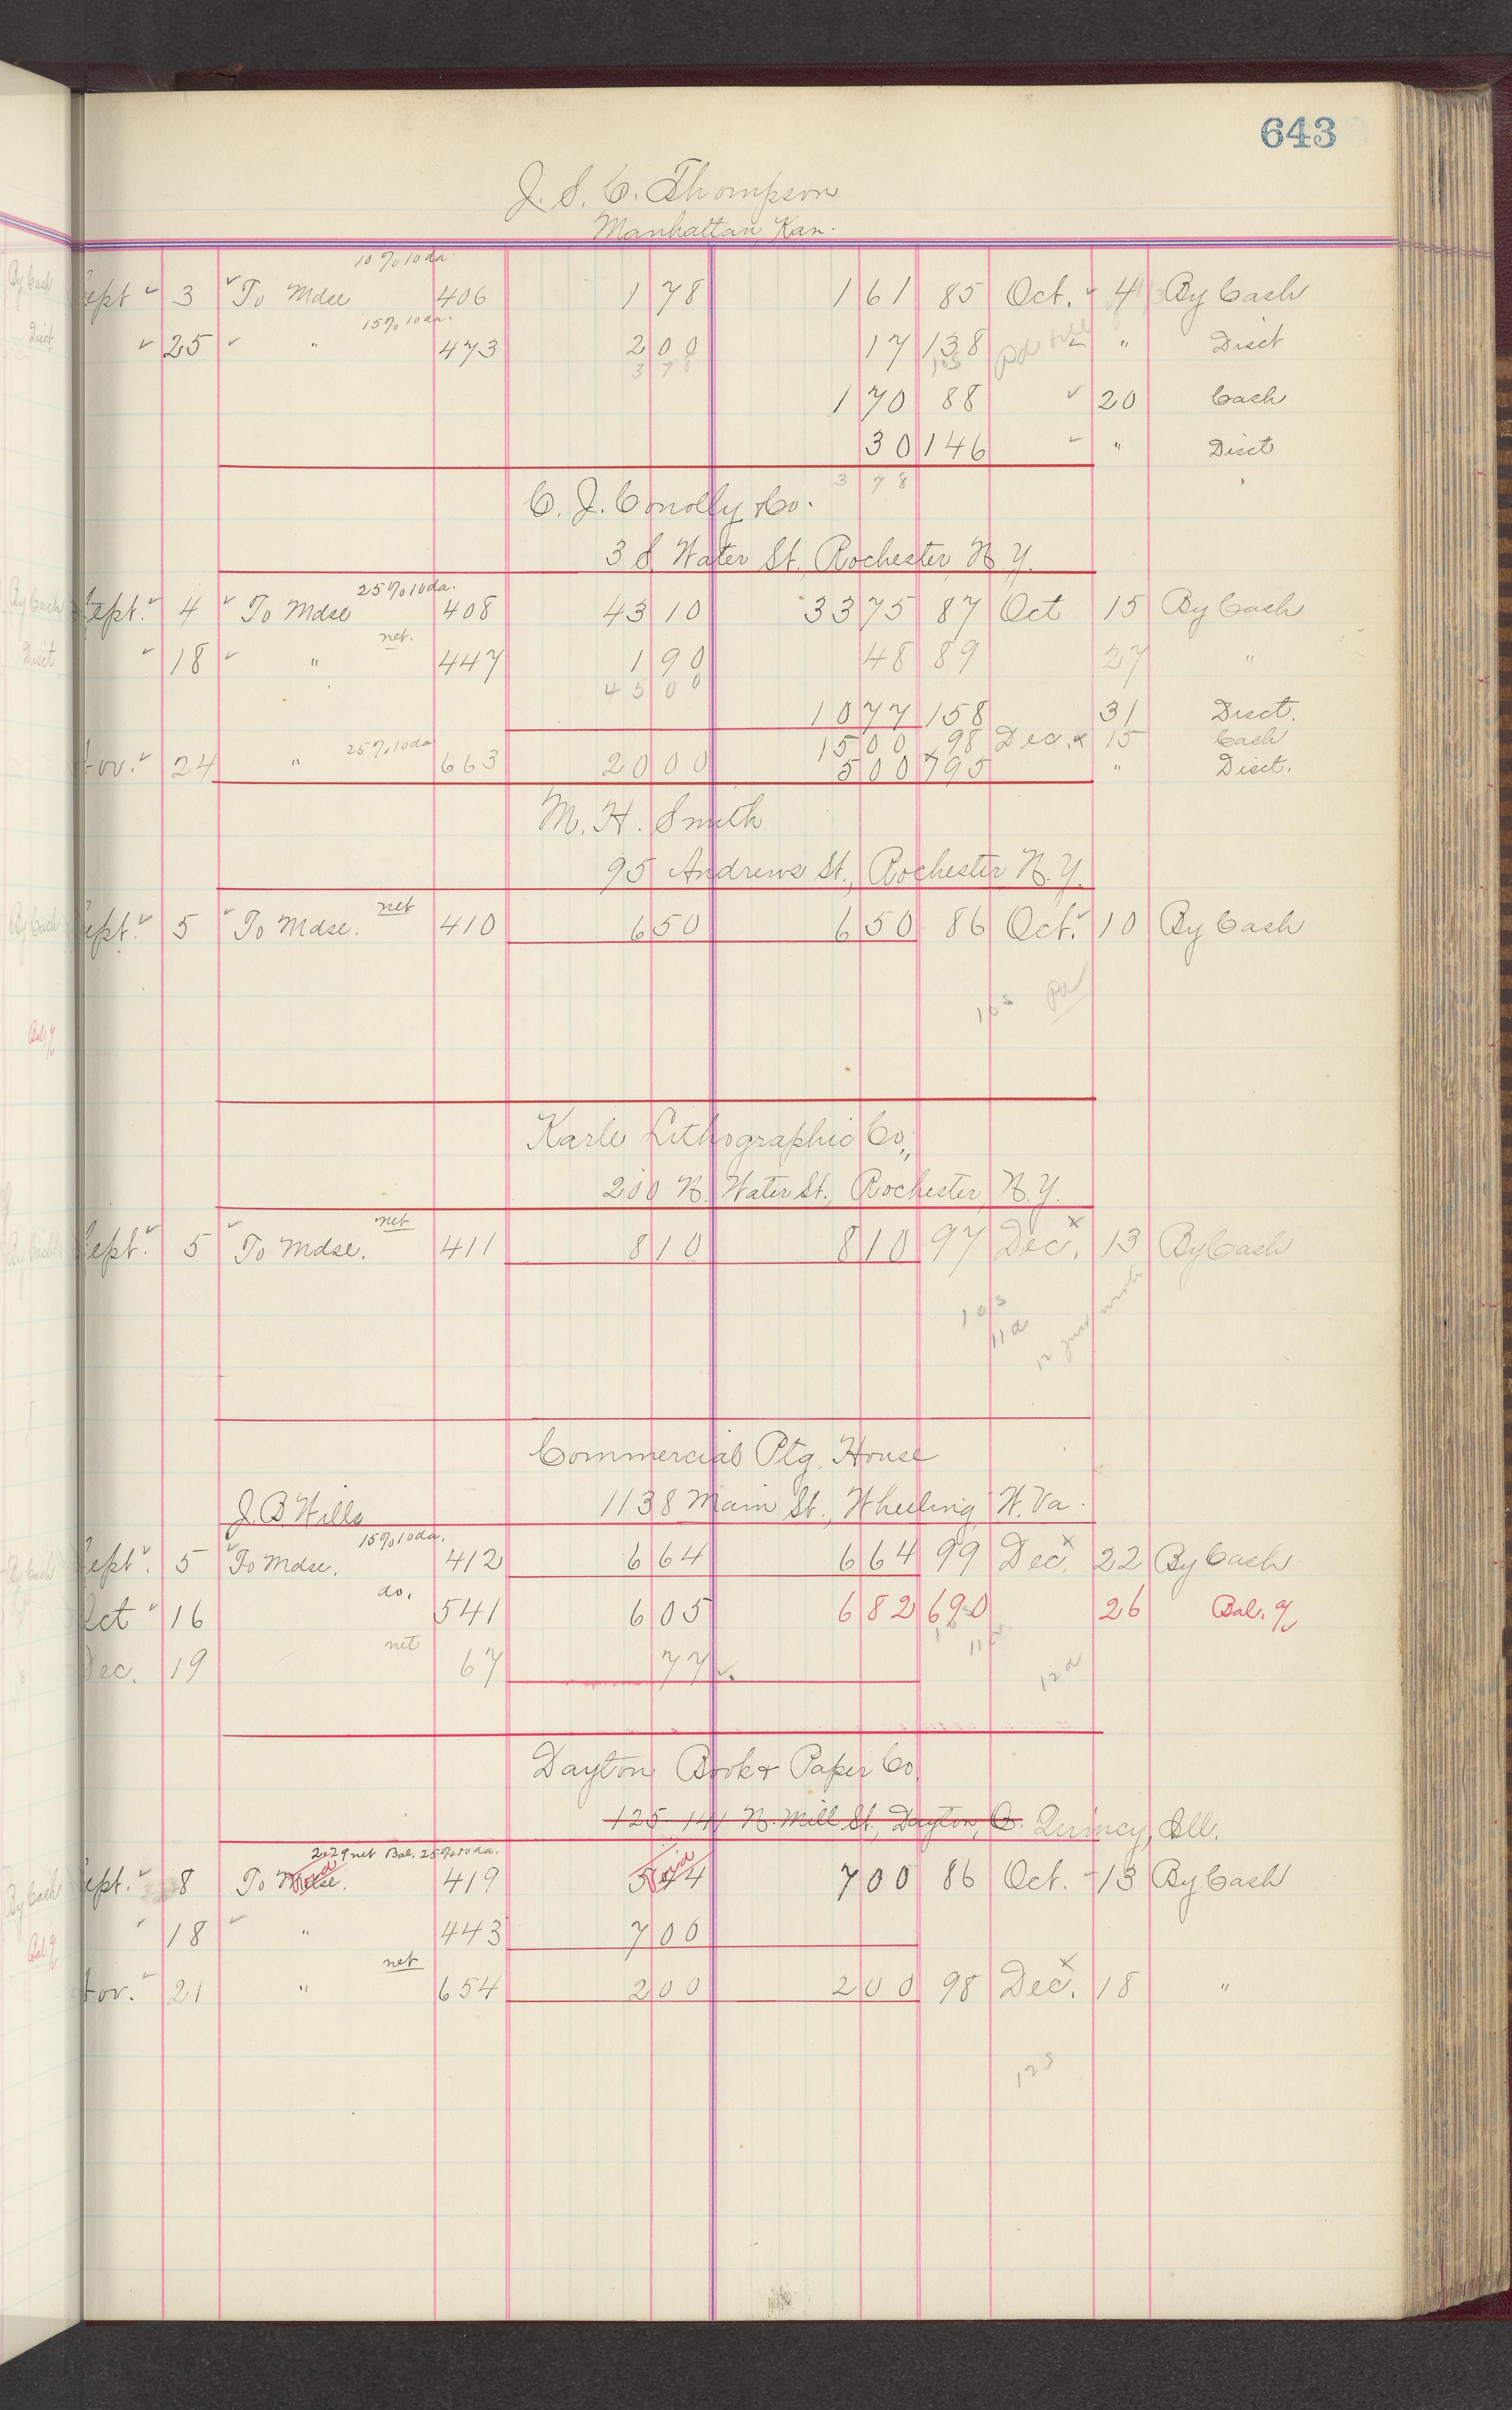 643
J. S. C. Thompson
Manhattan Kan.
10% 10 da.
ept 3 To Mdse 406 1 78 1 61 85 Oct. 4 By Cash
15% 10 da.
25 " 473 2 00 17 138 " Disct
3 78
1 70 88 20 Cash
30 146 " Disct
3 78
C. J. Conolly & Co.
3 S. Water St. Rochester N. Y.
25% 10 da.
Sept. 4 To Mdse 408 43 10 33 75 87 Oct 15 By Cash
net.
18 " 447 1 90 48 89 27 "
45 00
10 77 158 31 Disct.
15 00 98 Dec. x 15 Cash
25% 10 da
ov. 24 " 663 20 00 5 00 795 " Disct.
M. H. Smith
95 Andrews St., Rochester N. Y.
net
ept. 5 To Mdse. 410 6 50 6 50 86 Oct. 10 By Cash
10 s pd
Karle Lithographic Co.,
200 N. Water St., Rochester, N. Y.
net
Sept. 5 To Mdse. 411 8 10 8 10 97 Dec. x 13 By Cash
10 s
11 d
Commercial Ptg. House
J. B. Wills 1138 Main St., Wheeling W. Va.
15% 10 da.
Sept. 5 To Mdse. 412 6 64 6 64 99 Dec. x 22 By Cash
do.
Oct 16 541 6 05 6 82 690 26 Bal.
net
Dec. 19 67 77
12 d
Dayton Book & Paper Co.
125-141 N. Mill St., Dayton, O. Quincy, Ill.
2.29 net Bal. 25% 10 da.
ept. 8 To Mdse. Void 419 5 44 Void 7 00 86 Oct. 13 By Cash
18 " 443 7 00
net
ov. 21 " 654 2 00 2 00 98 Dec. x 18 "
12 s